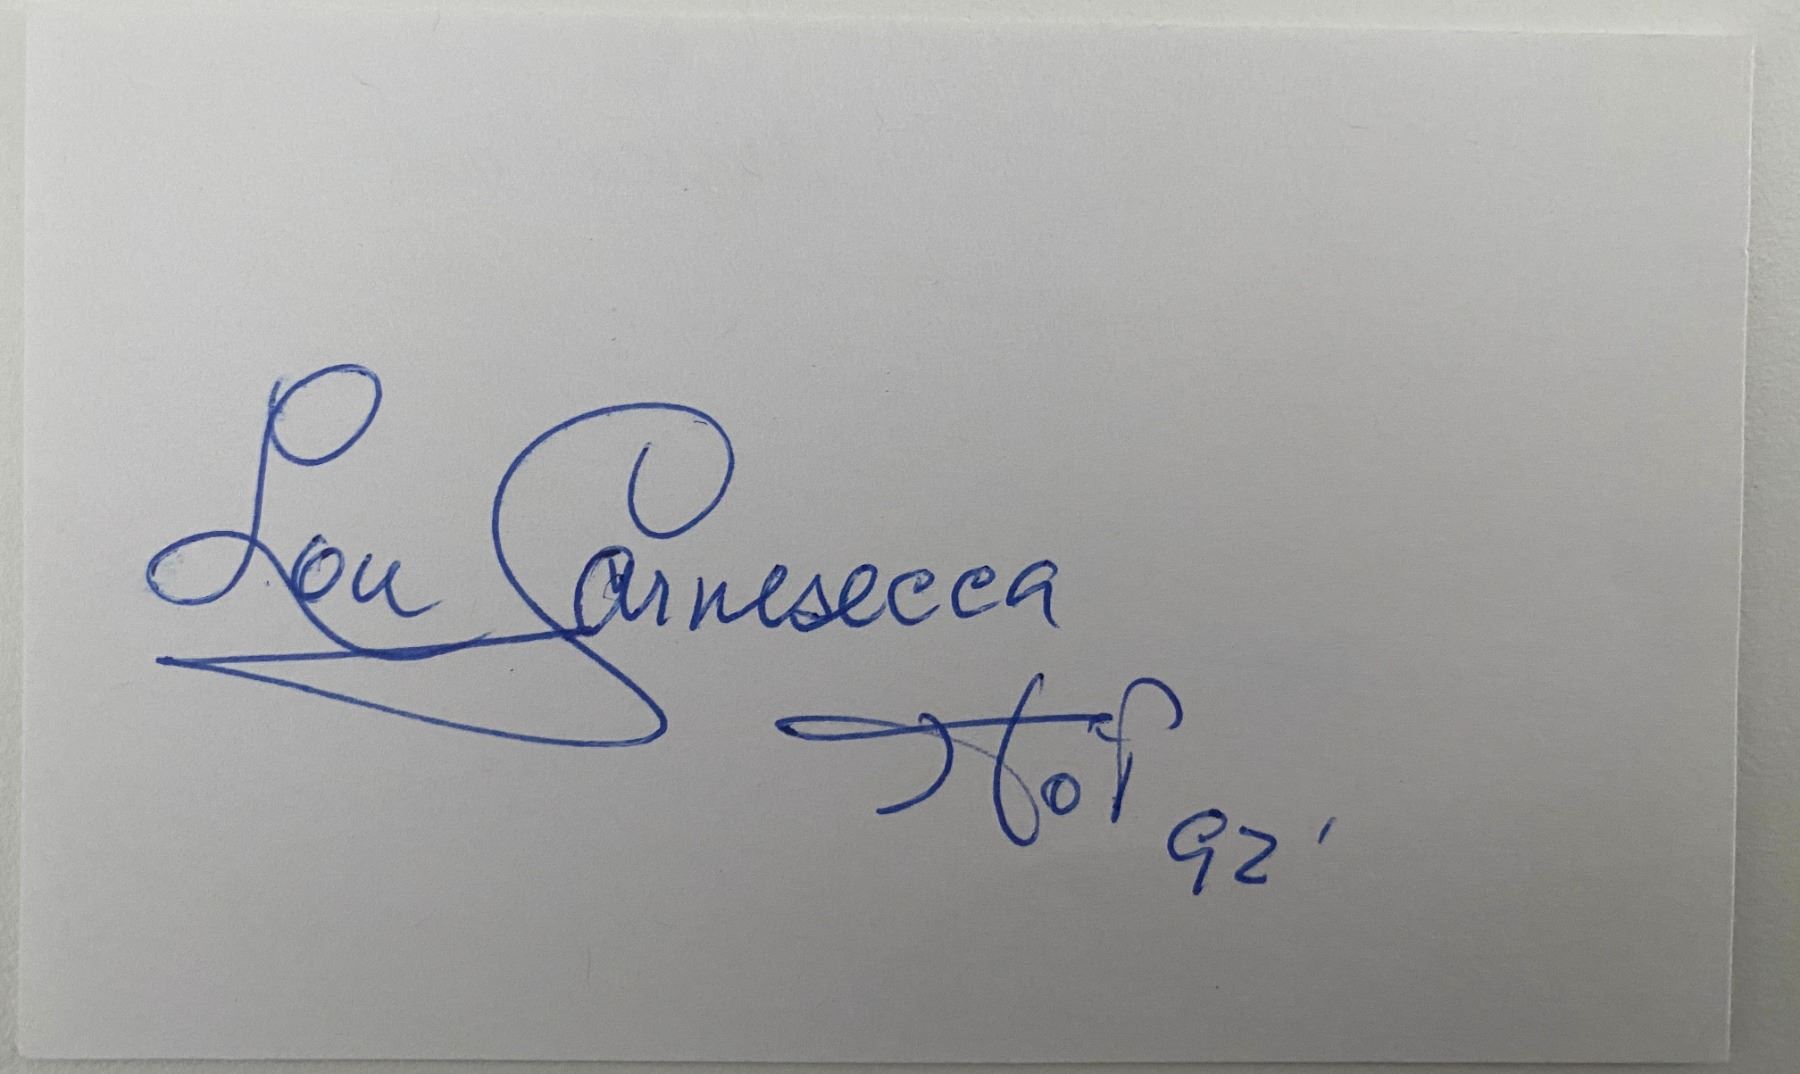 Lou Carnesecca
HoF
92'